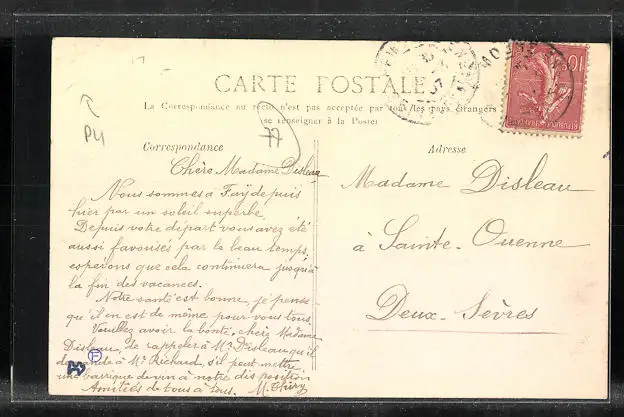 CARTE POSTALE
La Correspondance au recto n'est pas acceptée par tous les pays étrangers
se renseigner à la Poste
PLI
77
Correspondance
Adresse
Chère Madame Disleau
Nous sommes à Fay depuis
hier par un soleil superbe.
Depuis votre départ vous avez été
aussi favorisés par le beau temps,
esperons que cela continuera jusqu'à
la fin des vacances.
Notre santé est bonne, je pense
qu'il en est de même pour vous tous.
Veuillez avoir la bonté, chère Madame
Disleau, de rappeler à Mr Disleau qu'il
demande à Mr Richard, s'il peut mettre
une barrique de vin à notre disposition
Amitiés de tous à tous. M. Thiry
Madame Disleau
à Sainte-Ouenne
Deux-Sèvres
10
REPUBLIQUE FRANÇAISE
F